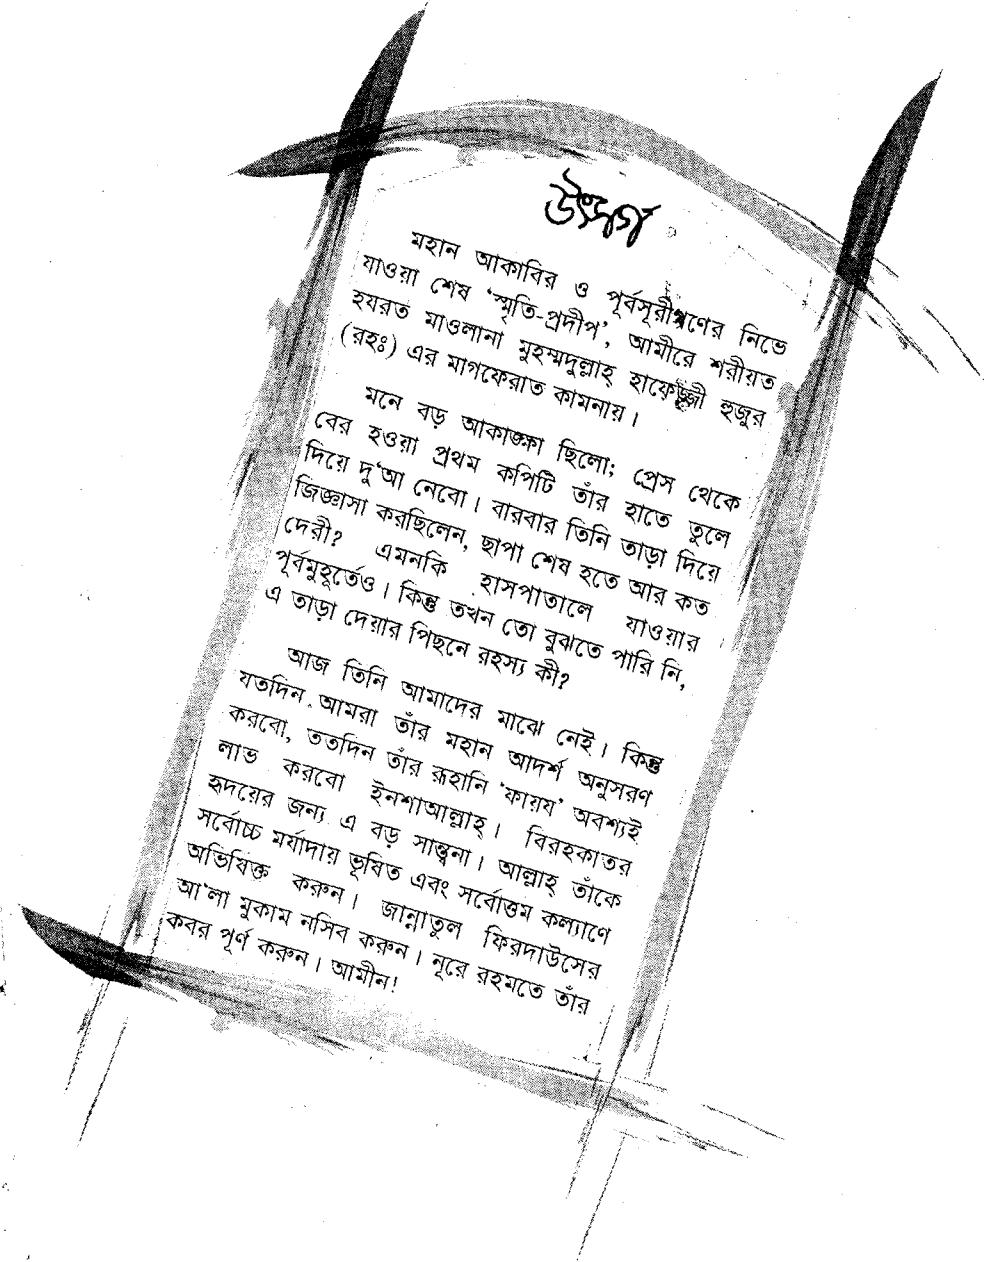 উৎসর্গ
মহান আকাবির ও পূর্বসূরীগণের নিভে
যাওয়া শেষ ‘স্মৃতি-প্রদীপ’, আমীরে শরীয়ত
হযরত মাওলানা মুহম্মদুল্লাহ্ হাফেজ্জী হুজুর
(রহঃ) এর মাগফেরাত কামনায়।
মনে বড় আকাঙ্ক্ষা ছিলো; প্রেস থেকে
বের হওয়া প্রথম কপিটি তাঁর হাতে তুলে
দিয়ে দু‘আ নেবো। বারবার তিনি তাড়া দিয়ে
জিজ্ঞাসা করছিলেন, ছাপা শেষ হতে আর কত
দেরী? এমনকি হাসপাতালে যাওয়ার
পূর্বমুহূর্তেও। কিন্তু তখন তো বুঝতে পারি নি,
এ তাড়া দেয়ার পিছনে রহস্য কী?
আজ তিনি আমাদের মাঝে নেই। কিন্তু
যতদিন আমরা তাঁর মহান আদর্শ অনুসরণ
করবো, ততদিন তাঁর রূহানি ‘ফায়য’ অবশ্যই
লাভ করবো ইনশাআল্লাহ্। বিরহকাতর
হৃদয়ের জন্য এ বড় সান্ত্বনা। আল্লাহ্ তাঁকে
সর্বোচ্চ মর্যাদায় ভূষিত এবং সর্বোত্তম কল্যাণে
অভিষিক্ত করুন। জান্নাতুল ফিরদাউসের
আ‘লা মুকাম নসিব করুন। নূরে রহমতে তাঁর
কবর পূর্ণ করুন। আমীন!